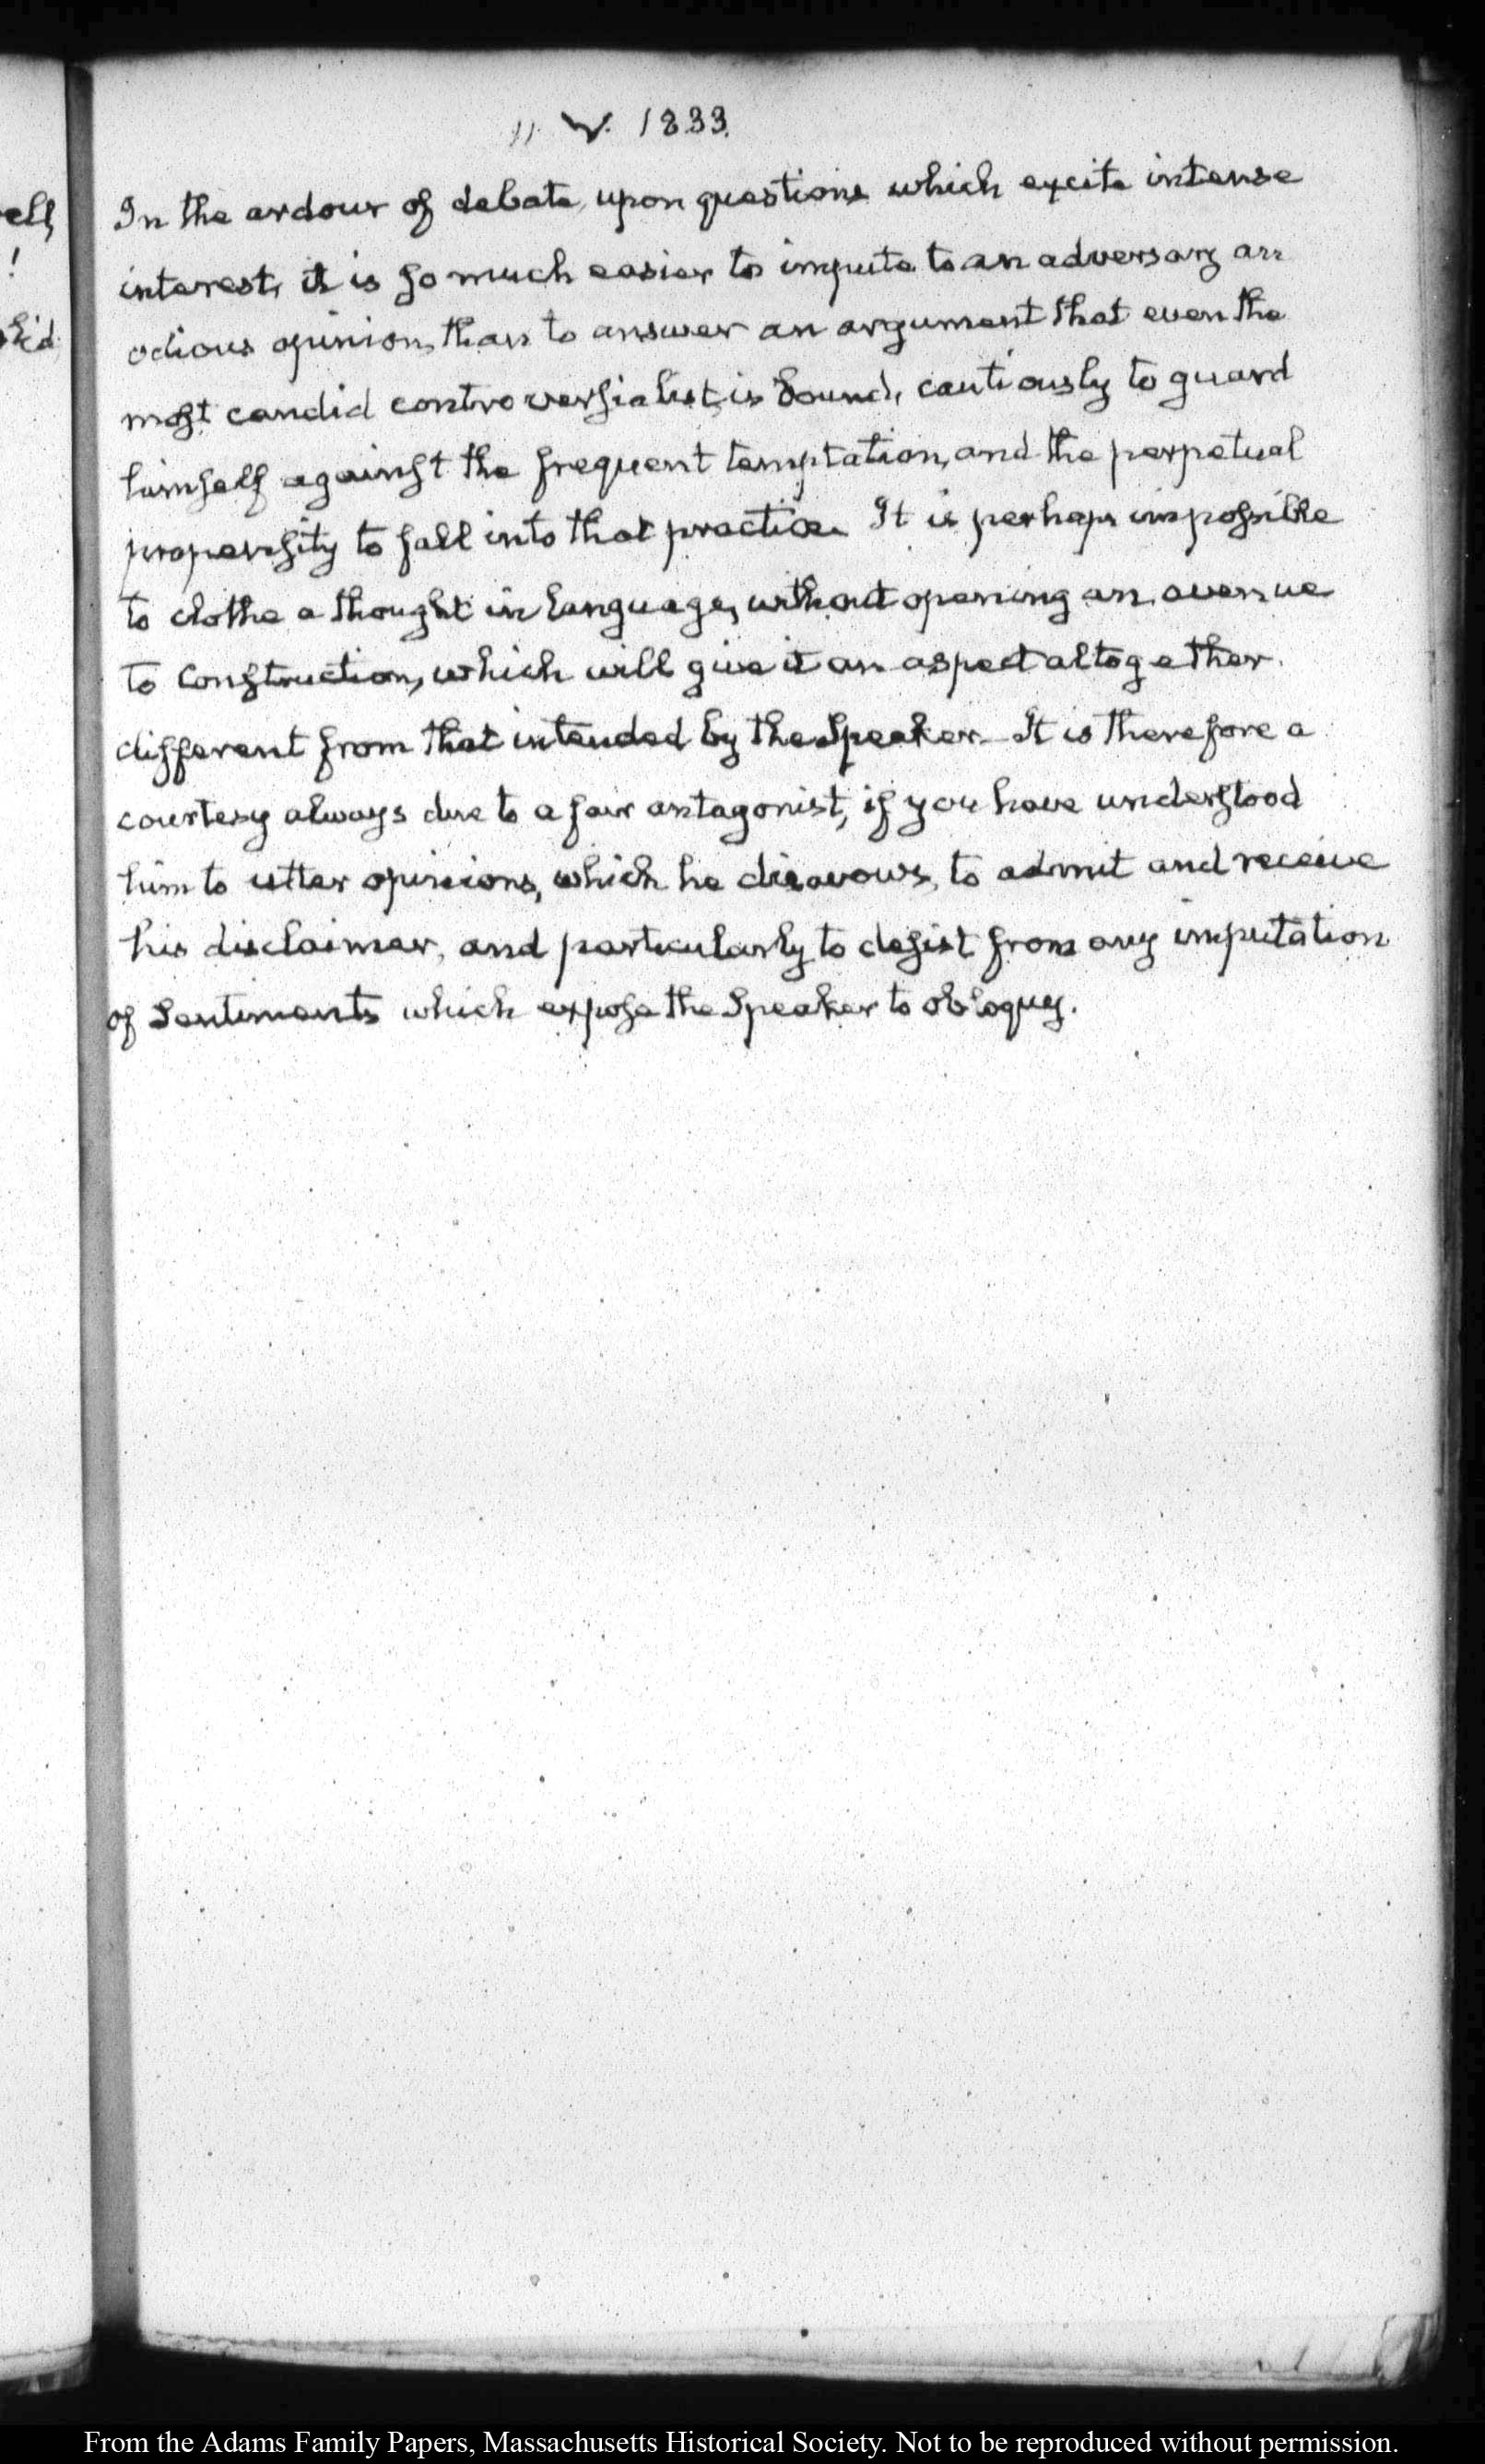 11. V. 1833.
In the ardour of debate, upon questions which excite intense
interest, it is so much easier to impute to an adversary an
odious opinion, than to answer an argument that even the
most candid controversialist, is bound, cautiously to guard
himself against the frequent temptation, and the perpetual
propensity to fall into that practice. It is perhaps impossible
to clothe a thought in language, without opening an avenue
to construction, which will give it an aspect altogether
different from that intended by the Speaker. It is therefore a
courtesy always due to a fair antagonist, if you have understood
him to utter opinions, which he disavows, to admit and receive
his disclaimer, and particularly to desist from any imputation
of Sentiments which expose the Speaker to obloquy.
From the Adams Family Papers, Massachusetts Historical Society. Not to be reproduced without permission.